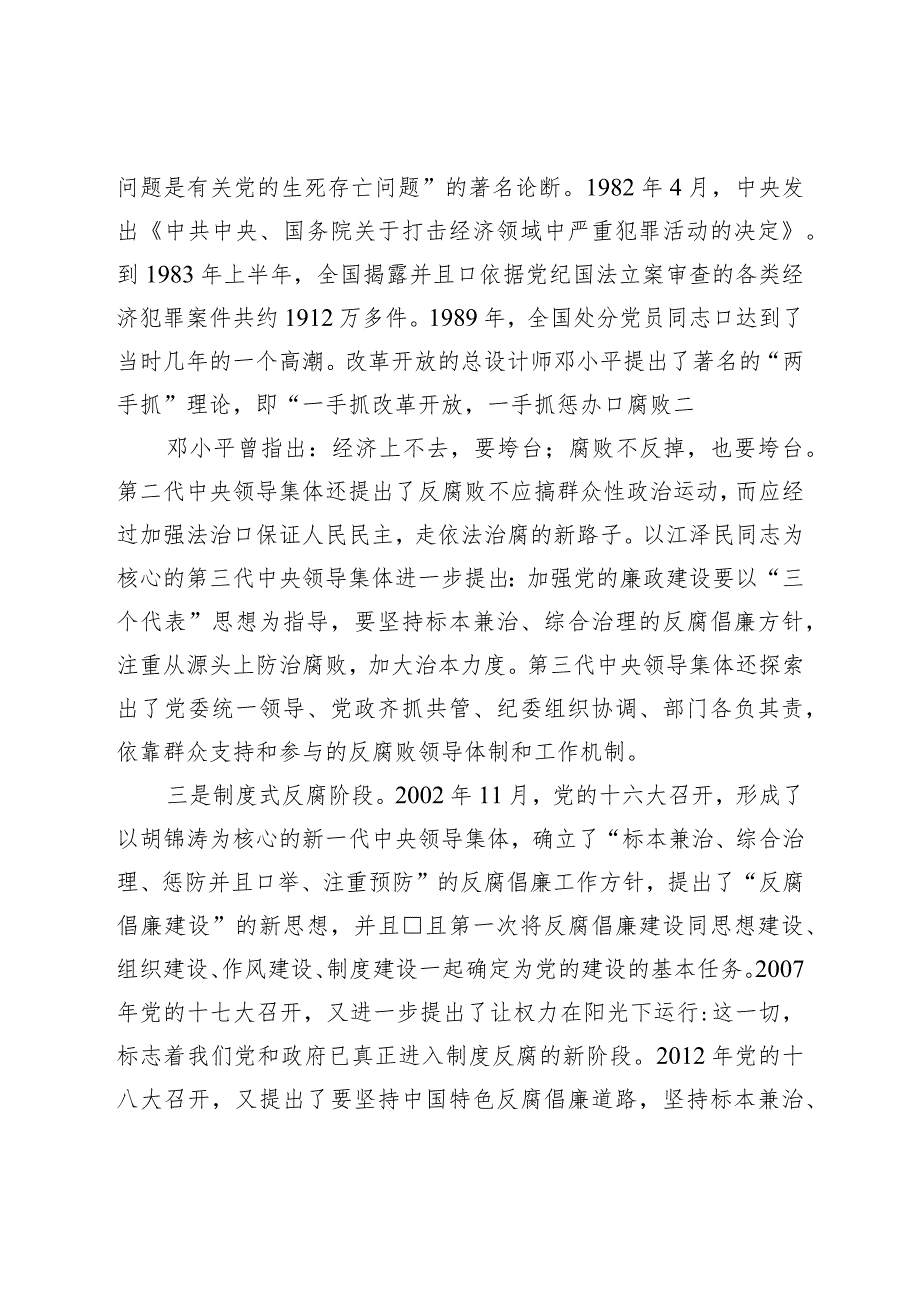 问题是有关党的生死存亡问题”的著名论断。1982 年 4 月，中央发
出《中共中央、国务院关于打击经济领域中严重犯罪活动的决定》。
到 1983 年上半年，全国揭露并且口依据党纪国法立案审查的各类经
济犯罪案件共约 1912 万多件。1989 年，全国处分党员同志口达到了
当时几年的一个高潮。改革开放的总设计师邓小平提出了著名的“两
手抓”理论，即“一手抓改革开放，一手抓惩办口腐败二
邓小平曾指出：经济上不去，要垮台；腐败不反掉，也要垮台。
第二代中央领导集体还提出了反腐败不应搞群众性政治运动，而应经
过加强法治口保证人民民主，走依法治腐的新路子。以江泽民同志为
核心的第三代中央领导集体进一步提出：加强党的廉政建设要以“三
个代表”思想为指导，要坚持标本兼治、综合治理的反腐倡廉方针，
注重从源头上防治腐败，加大治本力度。第三代中央领导集体还探索
出了党委统一领导、党政齐抓共管、纪委组织协调、部门各负其责，
依靠群众支持和参与的反腐败领导体制和工作机制。
三是制度式反腐阶段。2002 年 11 月，党的十六大召开，形成了
以胡锦涛为核心的新一代中央领导集体，确立了“标本兼治、综合治
理、惩防并且口举、注重预防”的反腐倡廉工作方针，提出了“反腐
倡廉建设”的新思想，并且□且第一次将反腐倡廉建设同思想建设、
组织建设、作风建设、制度建设一起确定为党的建设的基本任务。2007
年党的十七大召开，又进一步提出了让权力在阳光下运行:这一切，
标志着我们党和政府已真正进入制度反腐的新阶段。2012 年党的十
八大召开，又提出了要坚持中国特色反腐倡廉道路，坚持标本兼治、